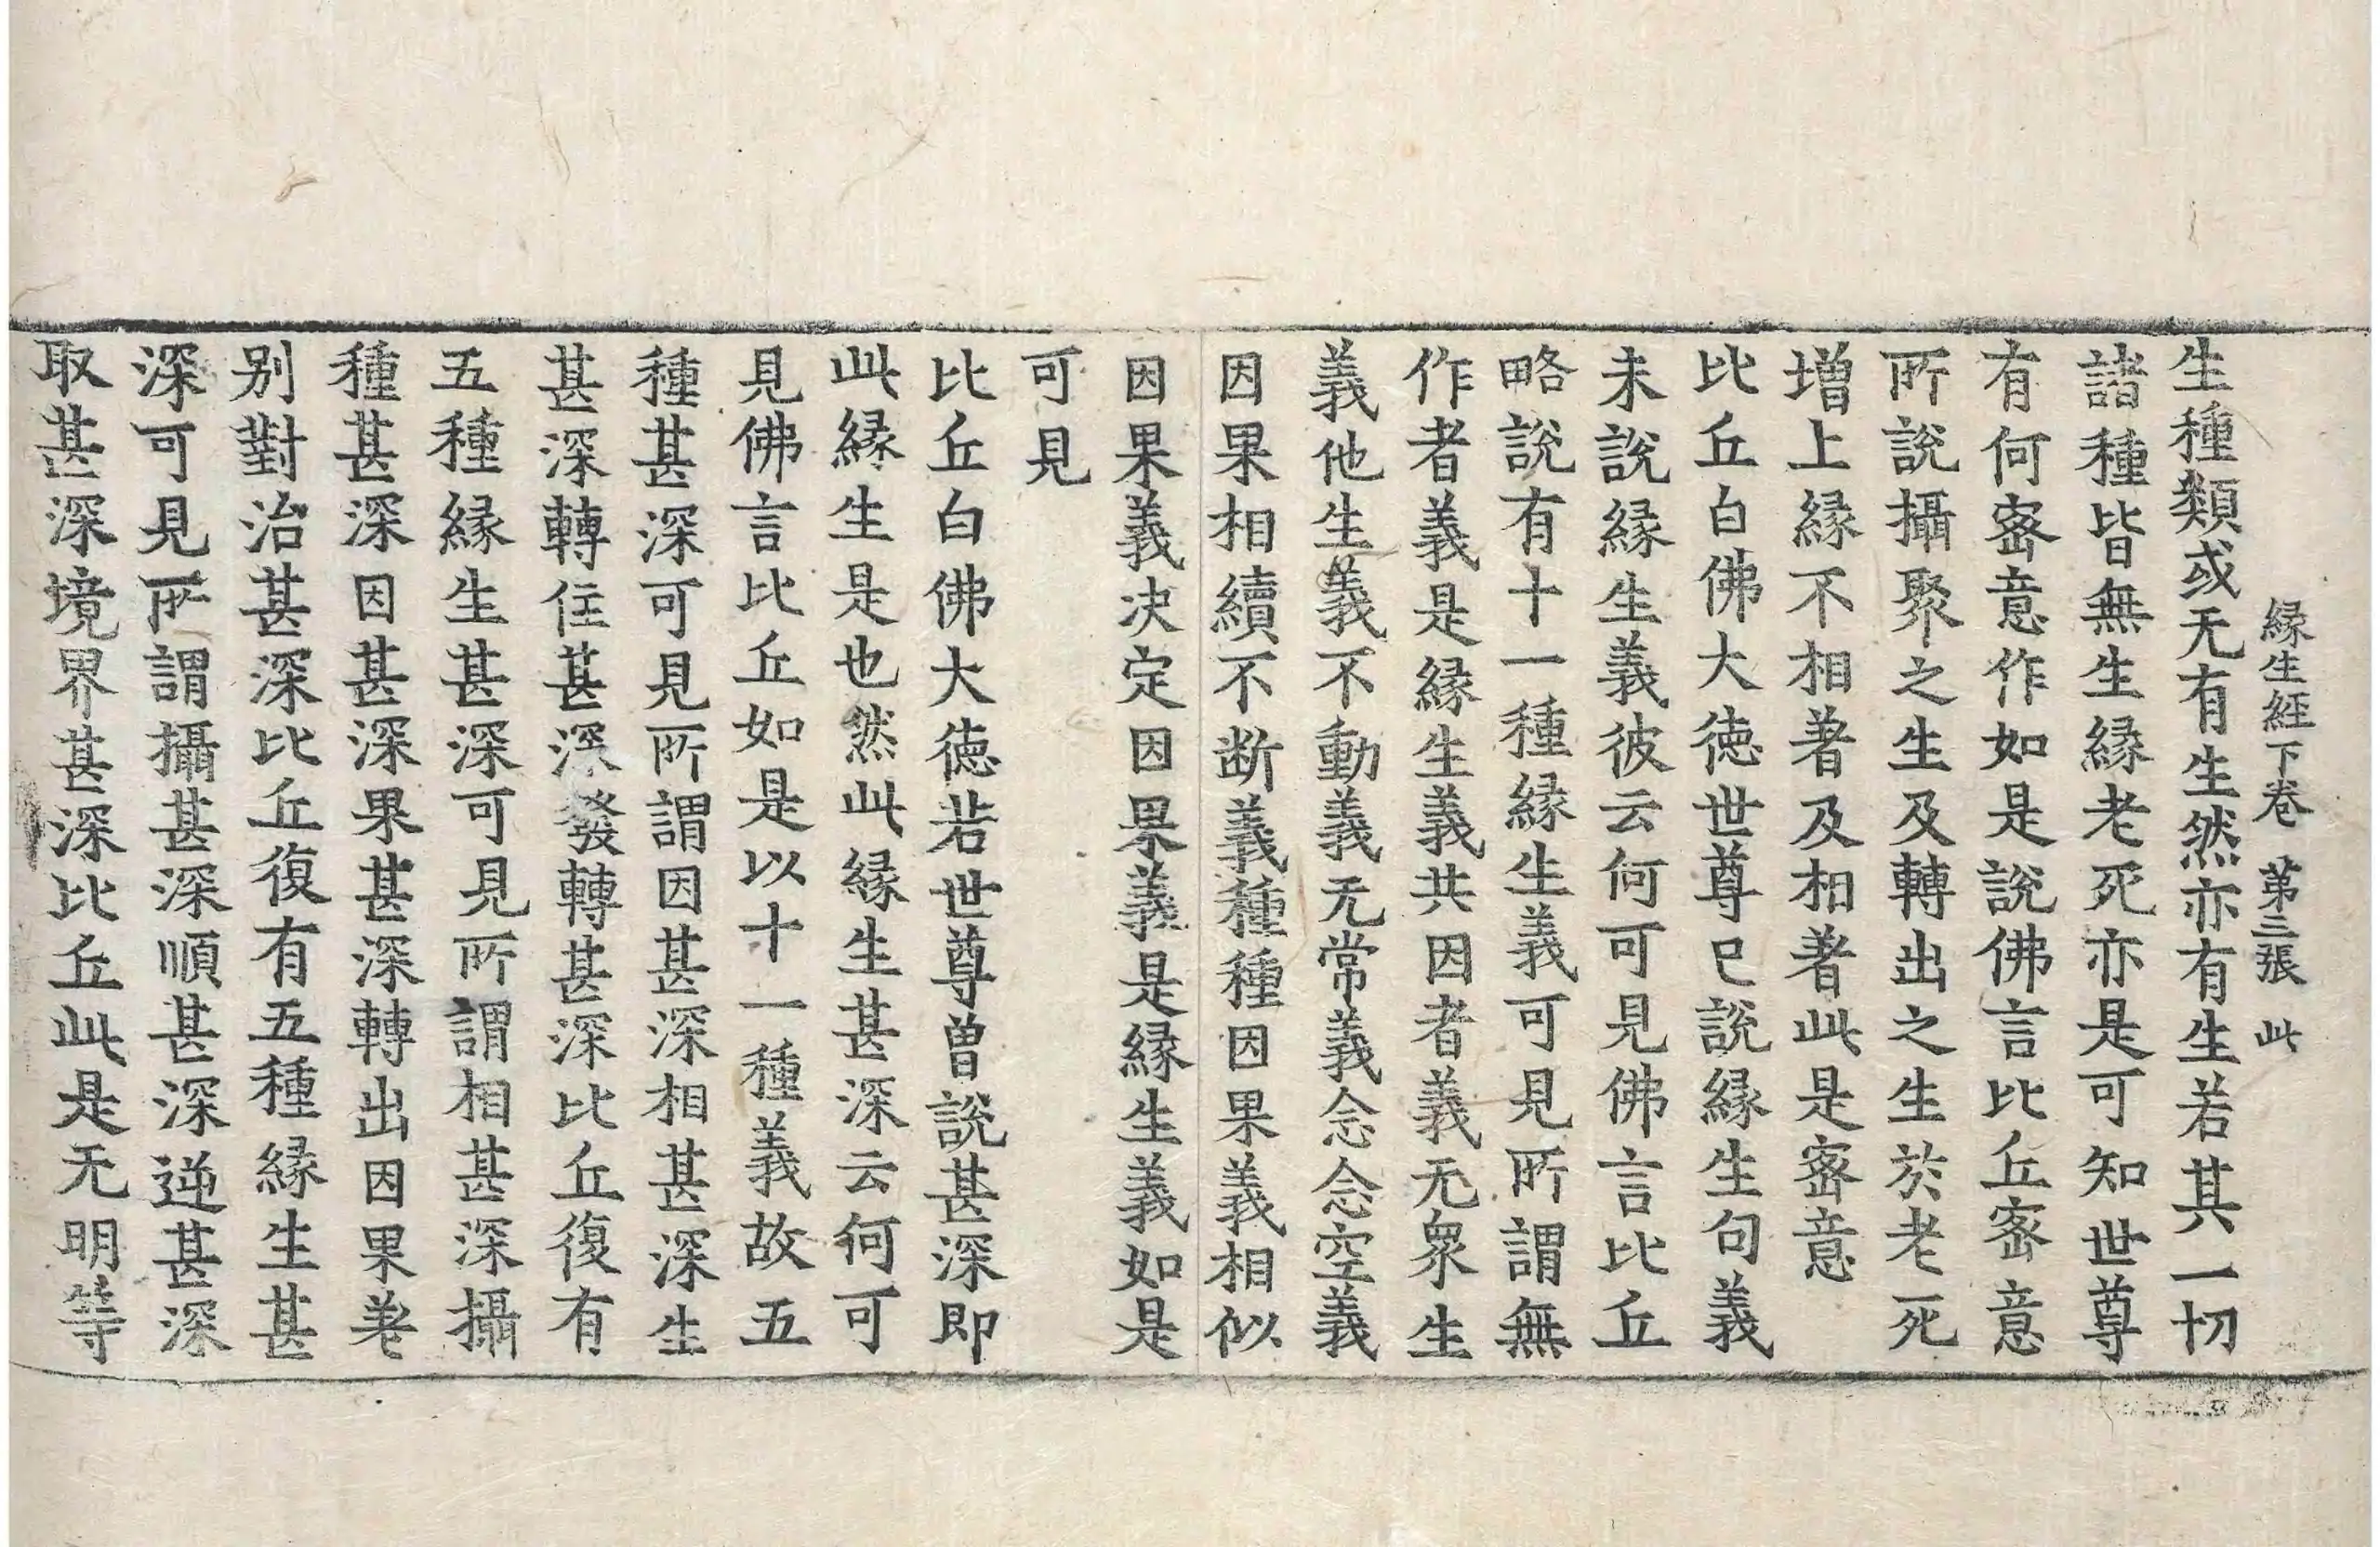 緣生經下卷 第三張 此
生種類或无有生然亦有生若其一切
諸種皆無生緣老死亦是可知世尊
有何密意作如是說佛言比丘密意
所說攝聚之生及轉出之生於老死
增上緣不相著及相著此是密意
比丘白佛大徳世尊已說緣生句義
未說緣生義彼云何可見佛言比丘
略說有十一種緣生義可見所謂無
作者義是緣生義共因者義无衆生
義他生義不動義无常義念念空義
因果相續不断義種種因果義相似
因果義决定因果義是緣生義如是
可見
比丘白佛大徳若世尊曾說甚深即
此緣生是也然此緣生甚深云何可
見佛言比丘如是以十一種義故五
種甚深可見所謂因甚深相甚深生
甚深轉住甚深發轉甚深比丘復有
五種緣生甚深可見所謂相甚深攝
種甚深因甚深果甚深轉出因果差
别對治甚深比丘復有五種緣生甚
深可見所謂攝甚深順甚深逆甚深
取甚深境界甚深比丘此是无明等